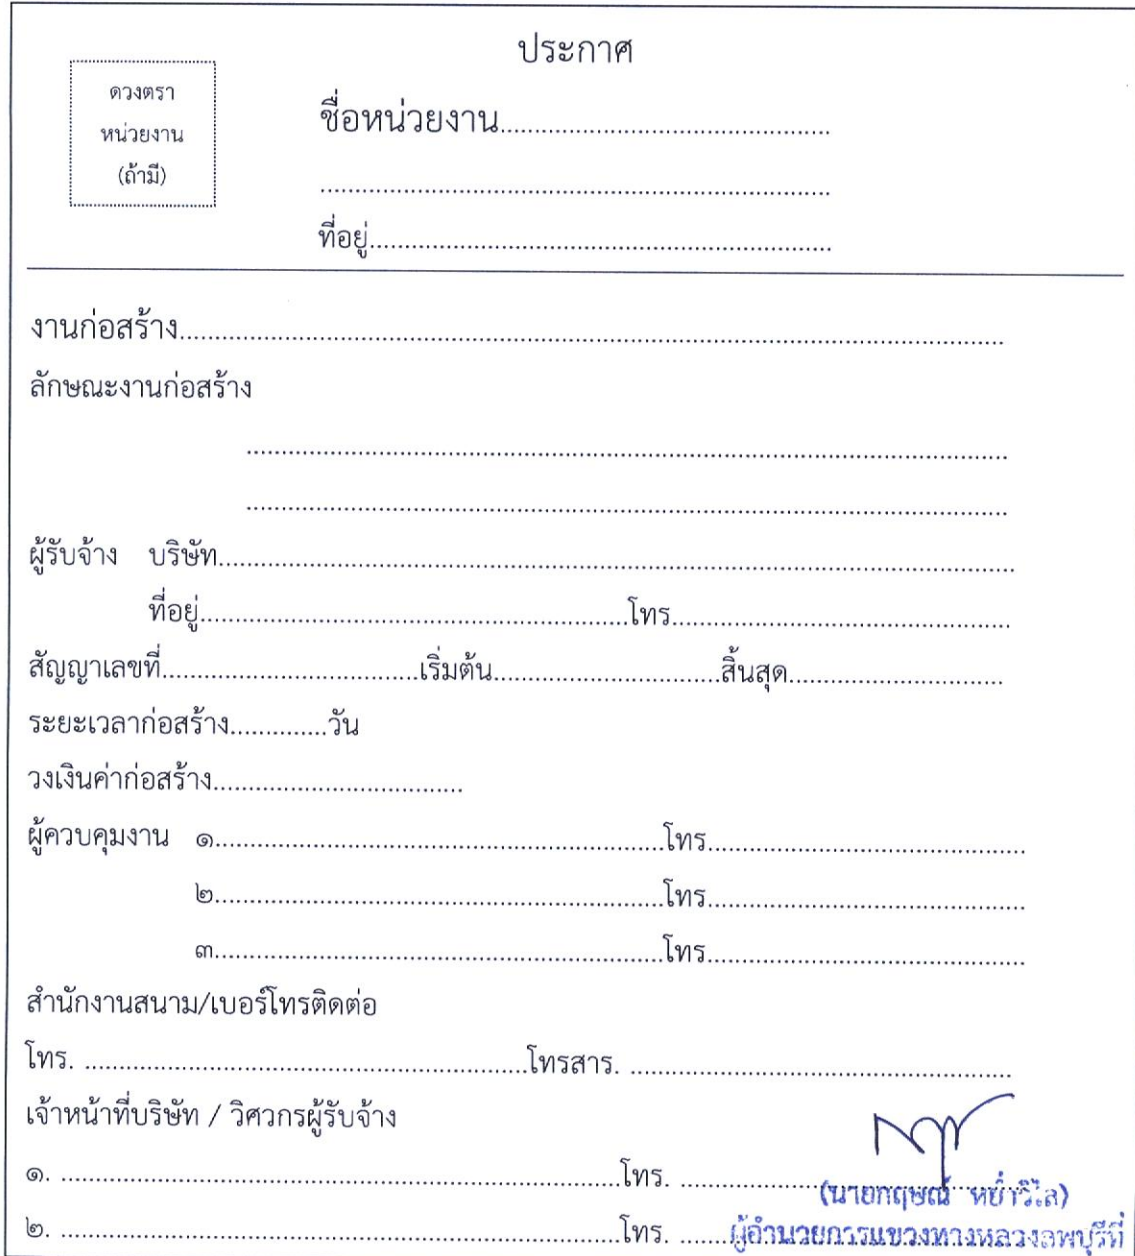 ประกาศ
ดวงตรา
หน่วยงาน
(ถ้ามี)
ชื่อหน่วยงาน...............................................
.........................................................................
ที่อยู่..................................................................
งานก่อสร้าง......................................................................................................................
ลักษณะงานก่อสร้าง
.............................................................................................................
.............................................................................................................
ผู้รับจ้าง บริษัท..................................................................................................................
ที่อยู่.............................................................โทร................................................
สัญญาเลขที่.....................................เริ่มต้น................................สิ้นสุด...............................
ระยะเวลาก่อสร้าง..............วัน
วงเงินค่าก่อสร้าง....................................
ผู้ควบคุมงาน ๑................................................................โทร.............................................
๒................................................................โทร.............................................
๓................................................................โทร.............................................
สำนักงานสนาม/เบอร์โทรติดต่อ
โทร. ...............................................................โทรสาร. ......................................................
เจ้าหน้าที่บริษัท / วิศวกรผู้รับจ้าง
๑. ................................................................................โทร. ................................................
(นายกฤษณ์ หย่ำวิไล)
๒. ................................................................................โทร. .......ผู้อำนวยการแขวงทางหลวงลพบุรีที่